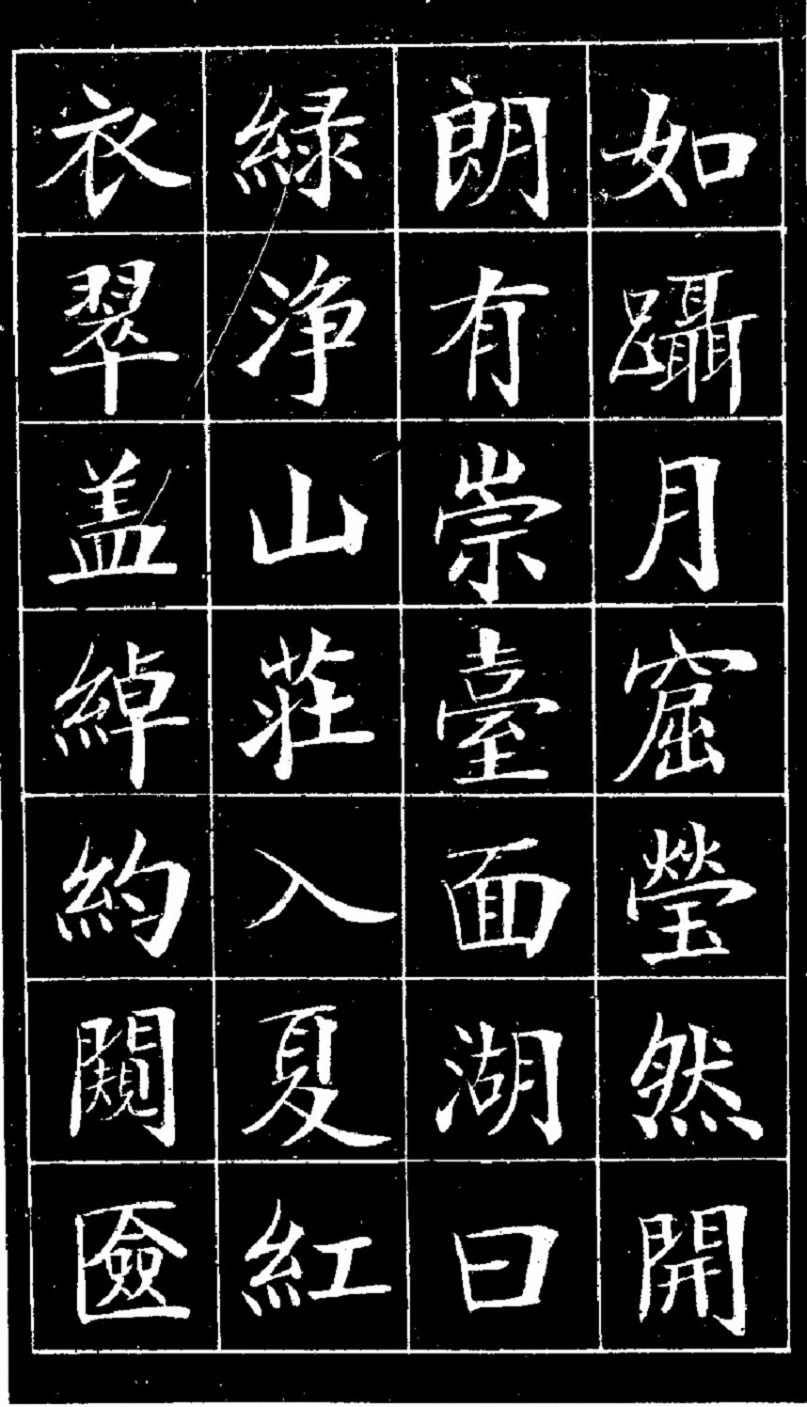 如躡月窟瑩然開
朗有崇臺面湖曰
緑浄山莊入夏紅
衣翠盖綽約闚匳